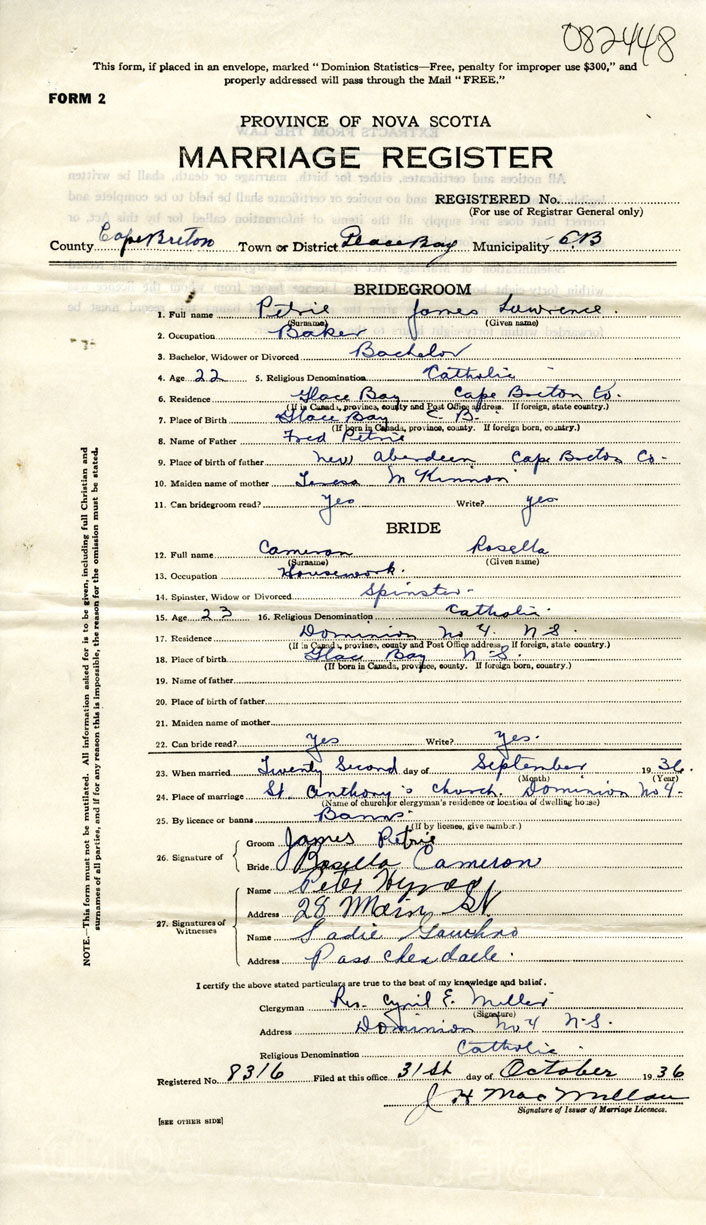 082448
This form, if placed in an envelope, marked "Dominion Statistics—Free, penalty for improper use $300," and
properly addressed will pass through the Mail "FREE."
FORM 2
PROVINCE OF NOVA SCOTIA
MARRIAGE REGISTER
REGISTERED No.
(For use of Registrar General only)
County Cape Breton Town or District Glace Bay Municipality CB
BRIDEGROOM
1. Full name Petrie James Lawrence.
(Surname) (Given name)
2. Occupation Baker
3. Bachelor, Widower or Divorced Bachelor
4. Age 22 5. Religious Denomination Catholic
6. Residence Glace Bay Cape Breton Co.
(If in Canada, province, county and Post Office address. If foreign, state country.)
7. Place of Birth Glace Bay C. B.
(If born in Canada, province, county. If foreign born, country.)
8. Name of Father Fred Petrie
9. Place of birth of father New Aberdeen Cape Breton Co-
10. Maiden name of mother Teresa McKinnon
11. Can bridegroom read? Yes Write? yes
BRIDE
12. Full name Cameron Rosella
(Surname) (Given name)
13. Occupation Housework.
14. Spinster, Widow or Divorced Spinster-
15. Age 23 16. Religious Denomination Catholic
17. Residence Dominion No 4. N-S.
(If in Canada, province, county and Post Office address. If foreign, state country.)
18. Place of birth Glace Bay N-S.
(If born in Canada, province, county. If foreign born, country.)
19. Name of father
20. Place of birth of father
21. Maiden name of mother
22. Can bride read? Yes Write? Yes.
23. When married Twenty Second day of September 1936.
(Month) (Year)
24. Place of marriage St. Anthony's Church. Dominion No 4-
(Name of church or clergyman's residence or location of dwelling house)
25. By licence or banns Banns-
(If by licence, give number.)
26. Signature of
Groom James Petrie
Bride Rosella Cameron
27. Signatures of Witnesses
Name Peter
Address 28 Main St
Name Sadie
Address Passchendaele.
I certify the above stated particulars are true to the best of my knowledge and belief.
Clergyman Rev. Cyril E. Miller
(Signature)
Address Dominion No 4 N-S.
Religious Denomination Catholic
Registered No. 8316 Filed at this office 31st day of October 1936
J H MacMillan
Signature of Issuer of Marriage Licences.
[SEE OTHER SIDE]
NOTE.—This form must not be mutilated. All information asked for is to be given, including full Christian and
surnames of all parties, and if for any reason this is impossible, the reason for the omission must be stated.